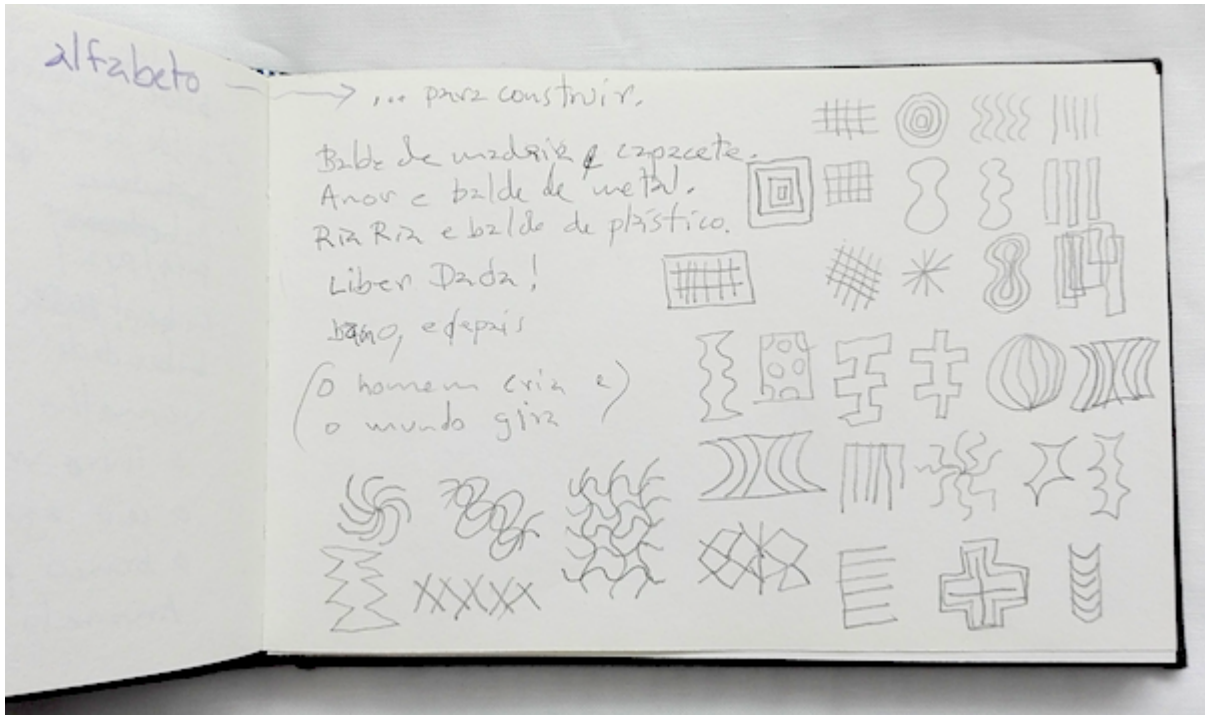 alfabeto
... para construir.
Balde de madeira e capacete.
Amor e balde de metal.
Ria Ria e balde de plástico.
Liber Dada!
e depois
(o homem cria e)
o mundo gira